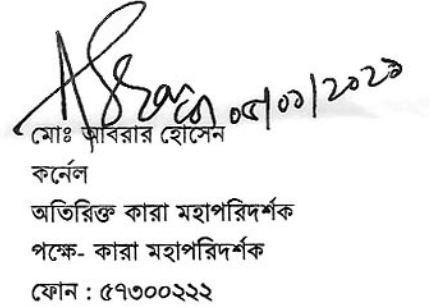 মোঃ আবরার হোসেন
কর্নেল
অতিরিক্ত কারা মহাপরিদর্শক
পক্ষে- কারা মহাপরিদর্শক
ফোন : ৫৭৩০০২২২